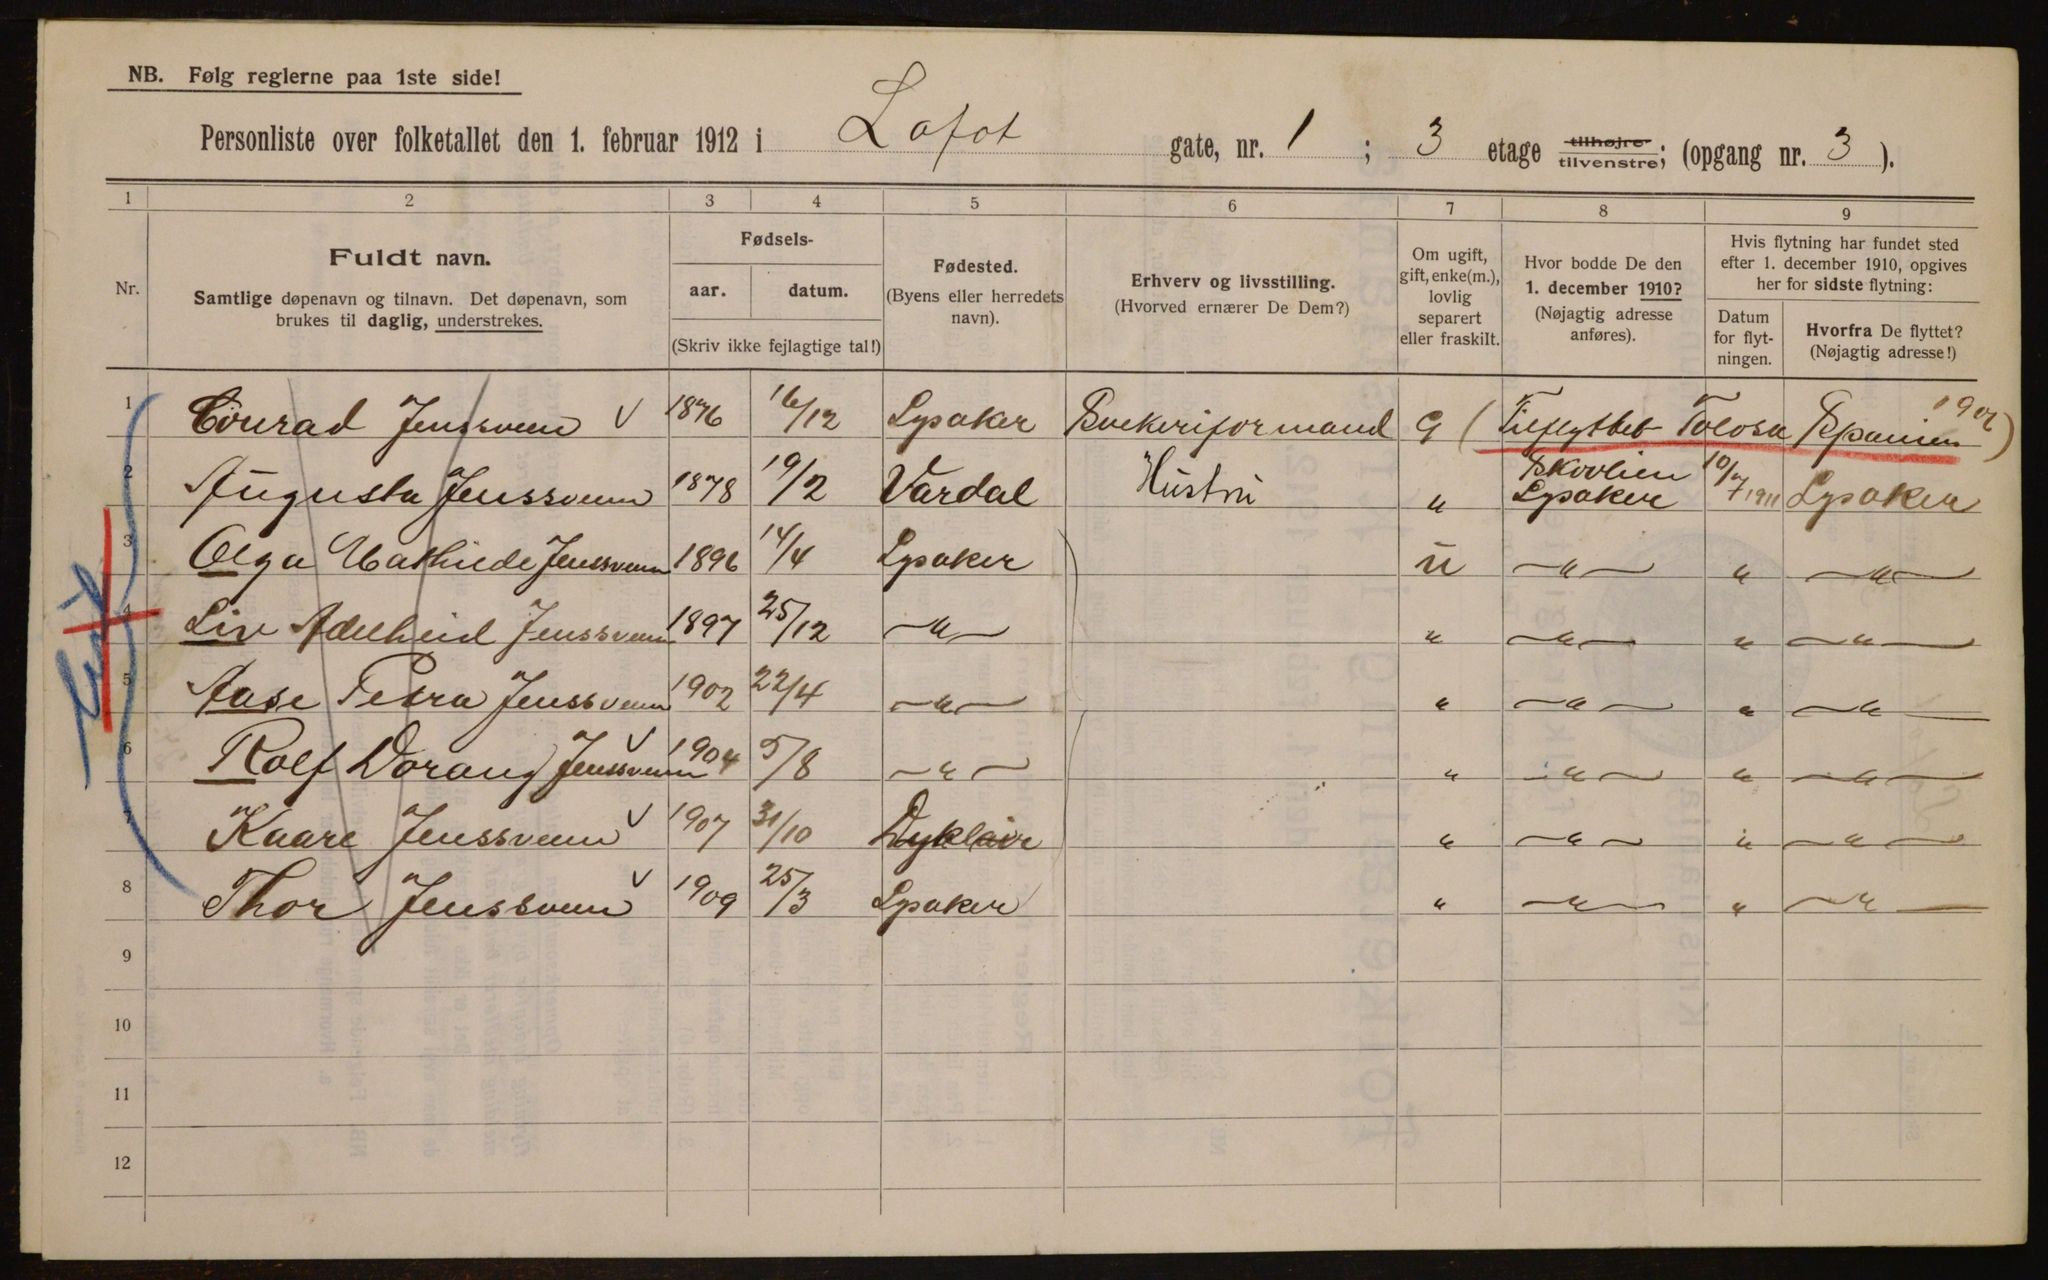 NB. Følg reglerne paa 1ste side!
Personliste over folketallet den 1. februar 1912 i Lofot gate, nr. 1 ; 3 etage tilhøjre tilvenstre; (opgang nr. 3 ).
1 2 3 4 5 6 7 8 9
Nr.
Fuldt navn.
Samtlige døpenavn og tilnavn. Det døpenavn, som
brukes til daglig, understrekes.
Fødsels-
aar. datum.
(Skriv ikke fejlagtige tal!)
Fødested.
(Byens eller herredets
navn).
Erhverv og livsstilling.
(Hvorved ernærer De Dem?)
Om ugift,
gift, enke(m.),
lovlig
separert
eller fraskilt.
Hvor bodde De den
1. december 1910?
(Nøjagtig adresse
anføres).
Hvis flytning har fundet sted
efter 1. december 1910, opgives
her for sidste flytning:
Datum
for flyt-
ningen.
Hvorfra De flyttet?
(Nøjagtig adresse!)
1 Conrad Jenssveen V 1876 16/12 Lysaker G (Tilflyttet Tolosa Spanien 190)
2 Augusta Jenssveen 1878 19/2 Vardal Hustru " Skovlien Lysaker 10/7 1911 Lysaker
3 Olga Mathilde Jenssveen 1896 14/4 Lysaker u — " — " — " —
4 Liv Adelheid Jenssveen 1897 25/12 — " — " — " — " — " —
5 Aase Petra Jenssveen 1902 22/4 — " — " — " — " — " —
6 Rolf Jenssveen V 1904 5/8 — " — " — " — " — " —
7 Kaare Jenssveen V 1907 31/10 " — " — " — " —
8 Thor Jenssveen V 1909 25/3 Lysaker " — " — " — " —
9
10
11
12